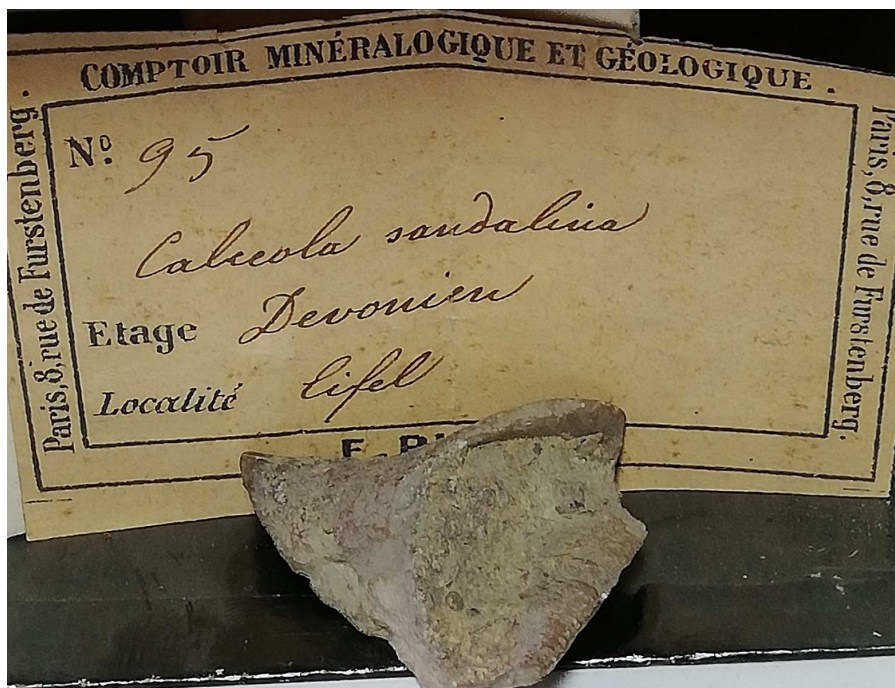 COMPTOIR MINÉRALOGIQUE ET GÉOLOGIQUE.
Paris, 8, rue de Furstenberg.
Nº. 95
Calceola sandalina
Etage Devonien
Localité Eifel
Paris, 8, rue de Furstenberg.